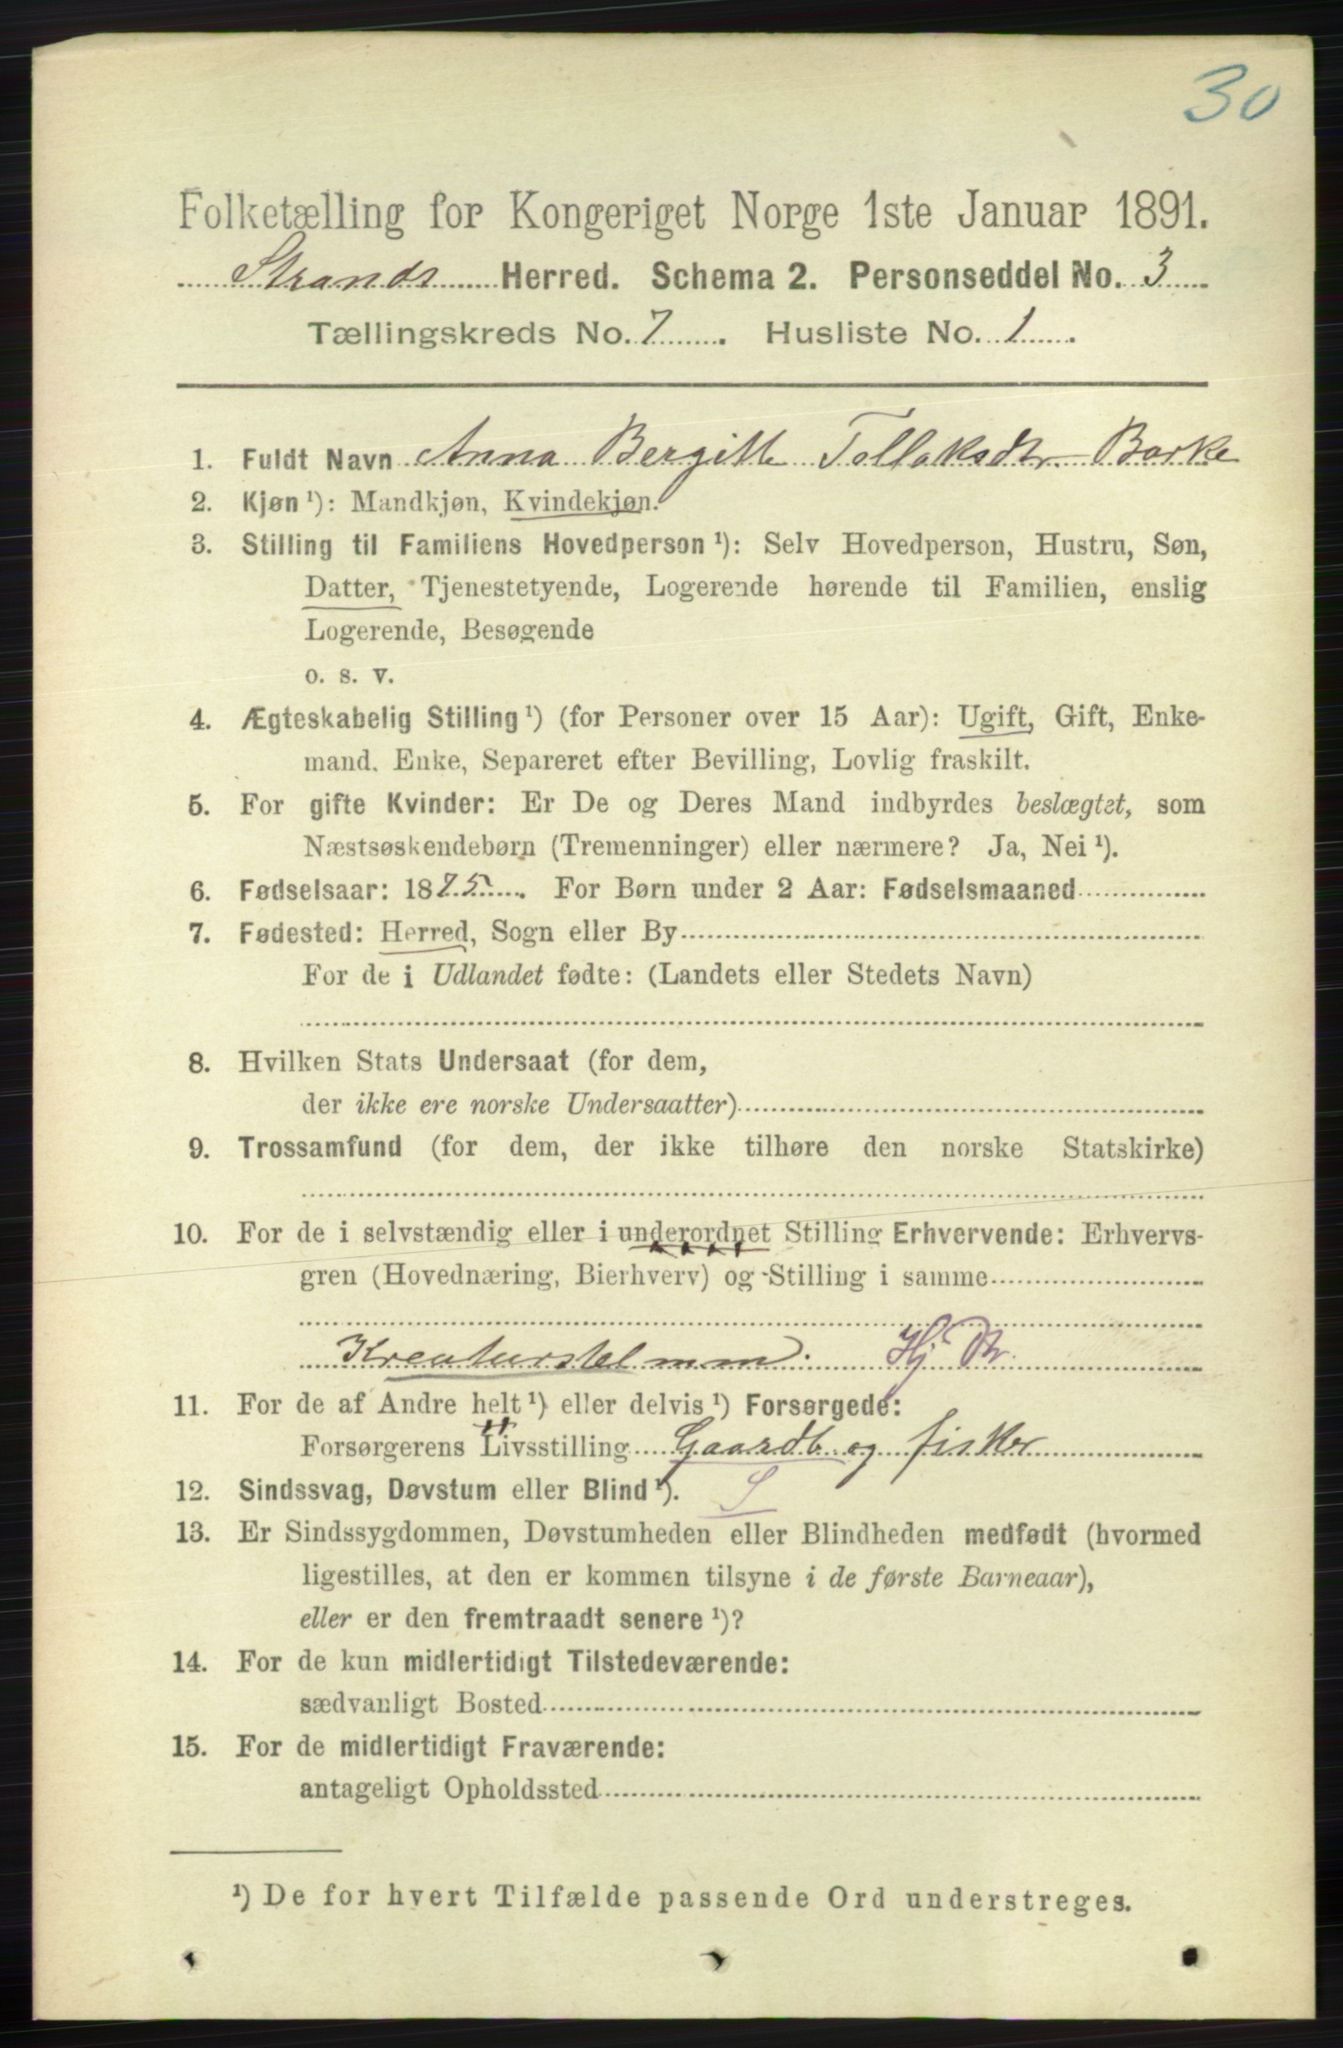 30
Folketælling for Kongeriget Norge 1ste Januar 1891.
Strands Herred. Schema 2. Personseddel No. 3
Tællingskreds No. 7. Husliste No. 1.
1. Fuldt Navn Anna Bergitte Tollaksdtr. Barke
2. Kjøn ¹): Mandkjøn, Kvindekjøn.
3. Stilling til Familiens Hovedperson ¹): Selv Hovedperson, Hustru, Søn,
Datter, Tjenestetyende, Logerende hørende til Familien, enslig
Logerende, Besøgende
o. s. v.
4. Ægteskabelig Stilling ¹) (for Personer over 15 Aar): Ugift, Gift, Enke-
mand. Enke, Separeret efter Bevilling, Lovlig fraskilt.
5. For gifte Kvinder: Er De og Deres Mand indbyrdes beslægtet, som
Næstsøskendebørn (Tremenninger) eller nærmere? Ja, Nei ¹).
6. Fødselsaar: 1875. For Børn under 2 Aar: Fødselsmaaned
7. Fødested: Herred, Sogn eller By
For de i Udlandet fødte: (Landets eller Stedets Navn)
8. Hvilken Stats Undersaat (for dem,
der ikke ere norske Undersaatter)
9. Trossamfund (for dem, der ikke tilhøre den norske Statskirke)
10. For de i selvstændig eller i underordnet Stilling Erhvervende: Erhvervs-
gren (Hovednæring, Bierhverv) og Stilling i samme
Kreaturstel m m. Hj Dtr.
11. For de af Andre helt ¹) eller delvis ¹) Forsørgede:
Forsørgerens Livsstilling Gaardb og fisker
12. Sindssvag, Døvstum eller Blind ¹). S
13. Er Sindssygdommen, Døvstumheden eller Blindheden medfødt (hvormed
ligestilles, at den er kommen tilsyne i de første Barneaar),
eller er den fremtraadt senere ¹)?
14. For de kun midlertidigt Tilstedeværende:
sædvanligt Bosted
15. For de midlertidigt Fraværende:
antageligt Opholdssted
¹) De for hvert Tilfælde passende Ord understreges.